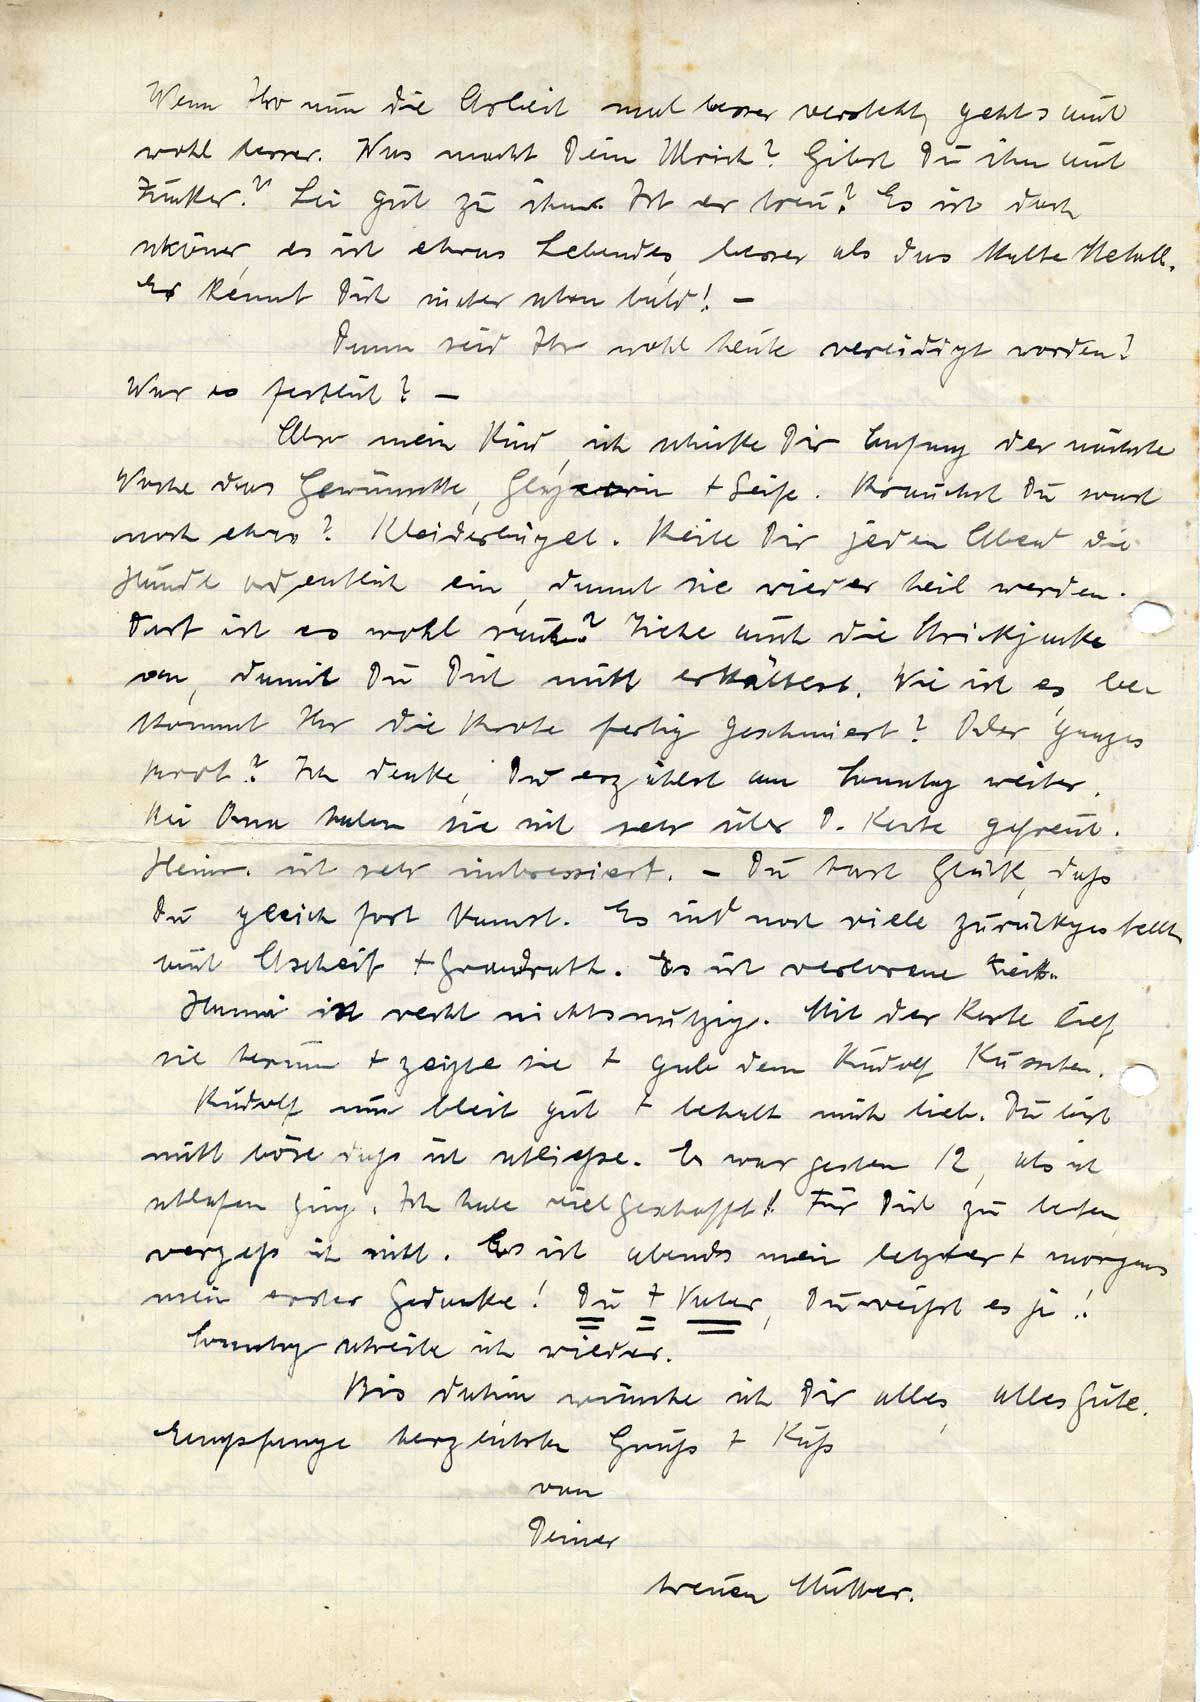 Wenn Ihr nun die Arbeit mal besser versteht, geht's auch
wohl besser. Was macht Dein Ulrich? Gibst Du ihm auch
Zucker? Sei gut zu ihm. Ist er treu? Es ist doch
schöner, es ist etwas Lebendes, besser als das kalte Metall.
Er kennt Dich sicher schon bald! –
Dann seid Ihr wohl heute vereidigt worden?
War es festlich? –
Also mein Kind, ich schicke Dir Anfang der nächste
Woche das Gewünschte, Glyzerin + Seife. Brauchst Du sonst
noch etwas? Kleiderbügel. Reibe Dir jeden Abend die
Hände ordentlich ein, damit sie wieder heil werden.
Dort ist es wohl rauh? Ziehe auch die Strickjacke
an, damit Du Dich nicht erkältest. Wie ist es, be
kommt Ihr die Brote fertig geschmiert? Oder ganzes
Brot? Ich denke, Du erzählst am Sonntag weiter.
Bei Oma haben sie sich sehr über D. Karte gefreut.
Heinr. ist sehr interessiert. – Du hast Glück, daß
Du gleich fort kamst. Es sind noch viele zurückgestellt
auch + Grandrath. Es ist verlorene Zeit.
ist recht nichtsnutzig. Mit der Karte lief
sie herum + zeigte sie + gab dem Rudolf Küsschen.
Rudolf nun bleib gut + behalt mich lieb. Du bist
nicht böse daß ich schließe. Es war gestern 12, als ich
schlafen ging. Ich habe viel geschafft! Für Dich zu beten,
vergeß ich nicht. Es ist abends mein letzter + morgens
mein erster Gedanke! Du + Vater, Du weißt es ja!
Sonntag schreibe ich wieder.
Bis dahin wünsche ich Dir alles, alles Gute.
Empfange herzlichste Gruß + Kuß
von
Deiner
treuen Mutter.